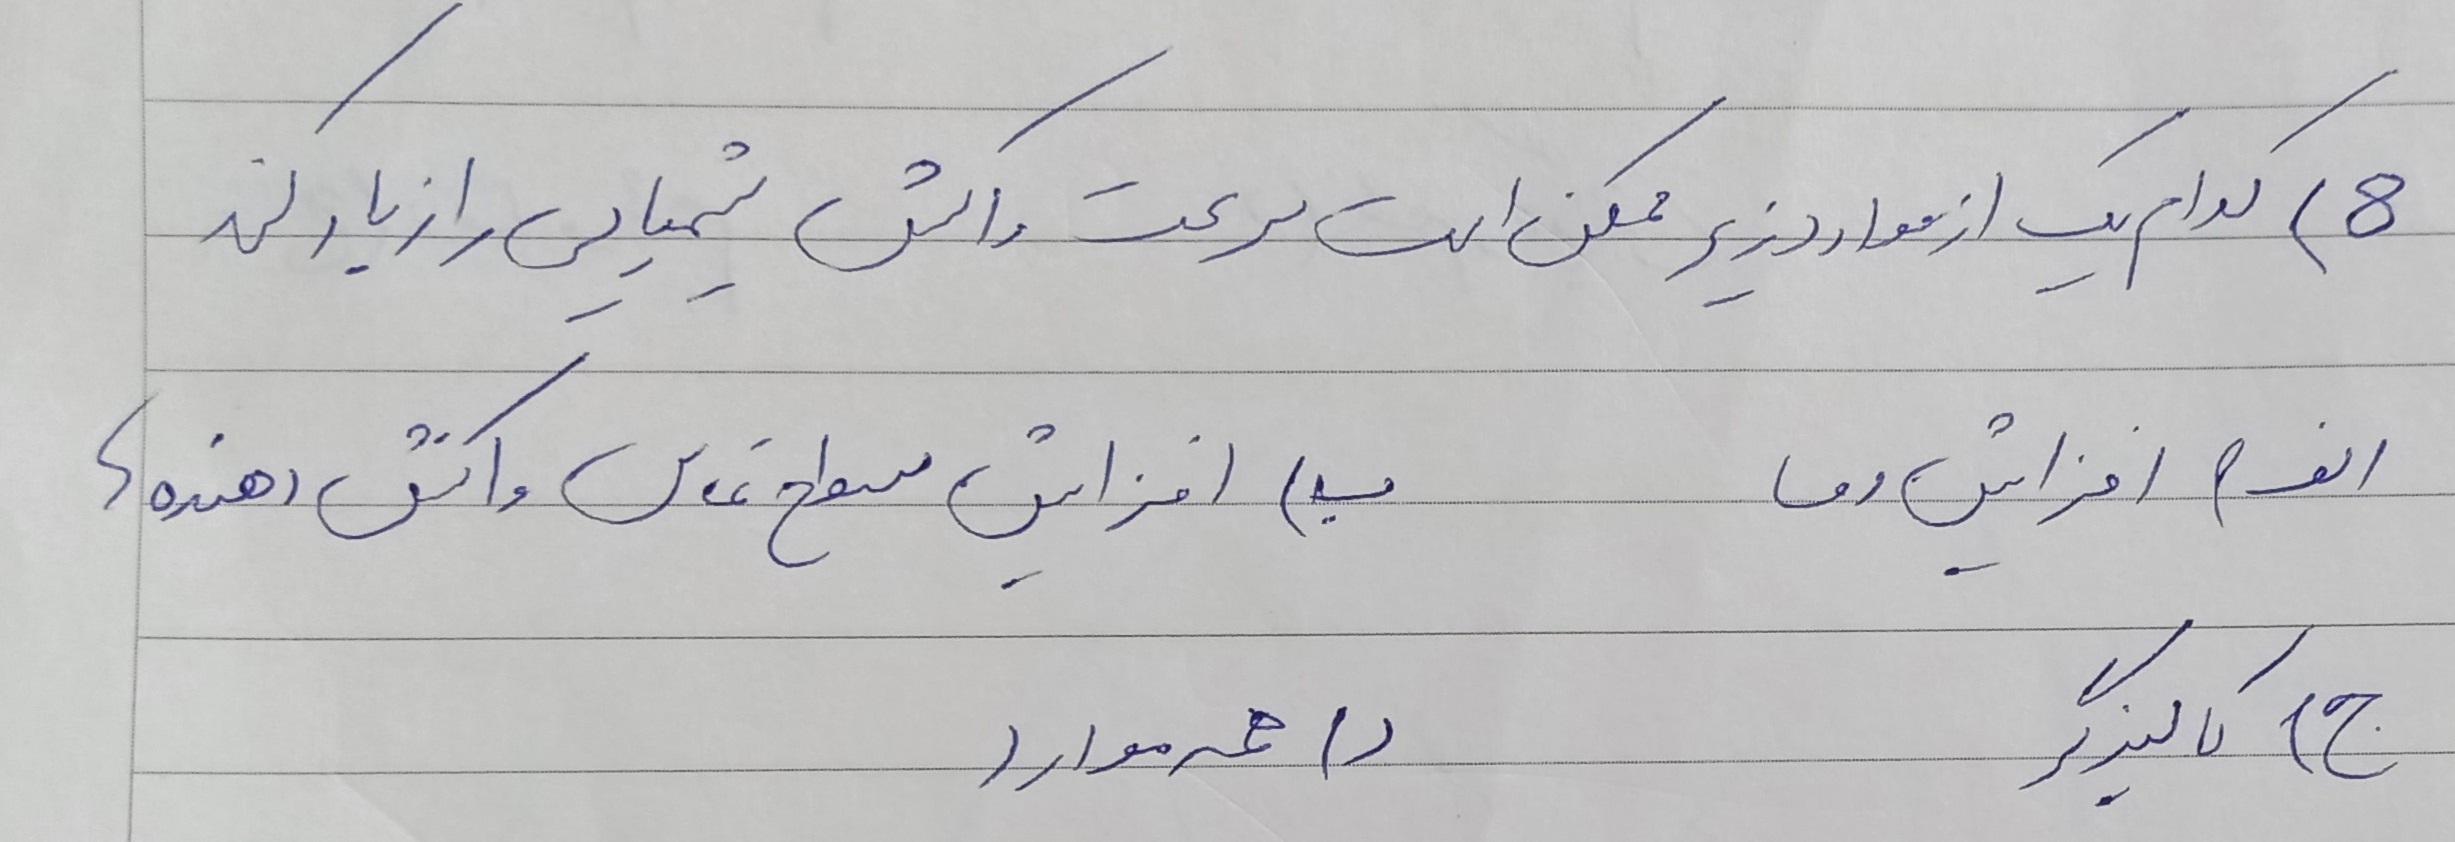 8) کدام یک از موارد زیر ممکن است سرعت واکنش شیمیایی را زیاد کند
الف) افزایش دما ب) افزایش سطح تماس واکنش دهنده ها
ج) کاتالیزگر د) همه موارد